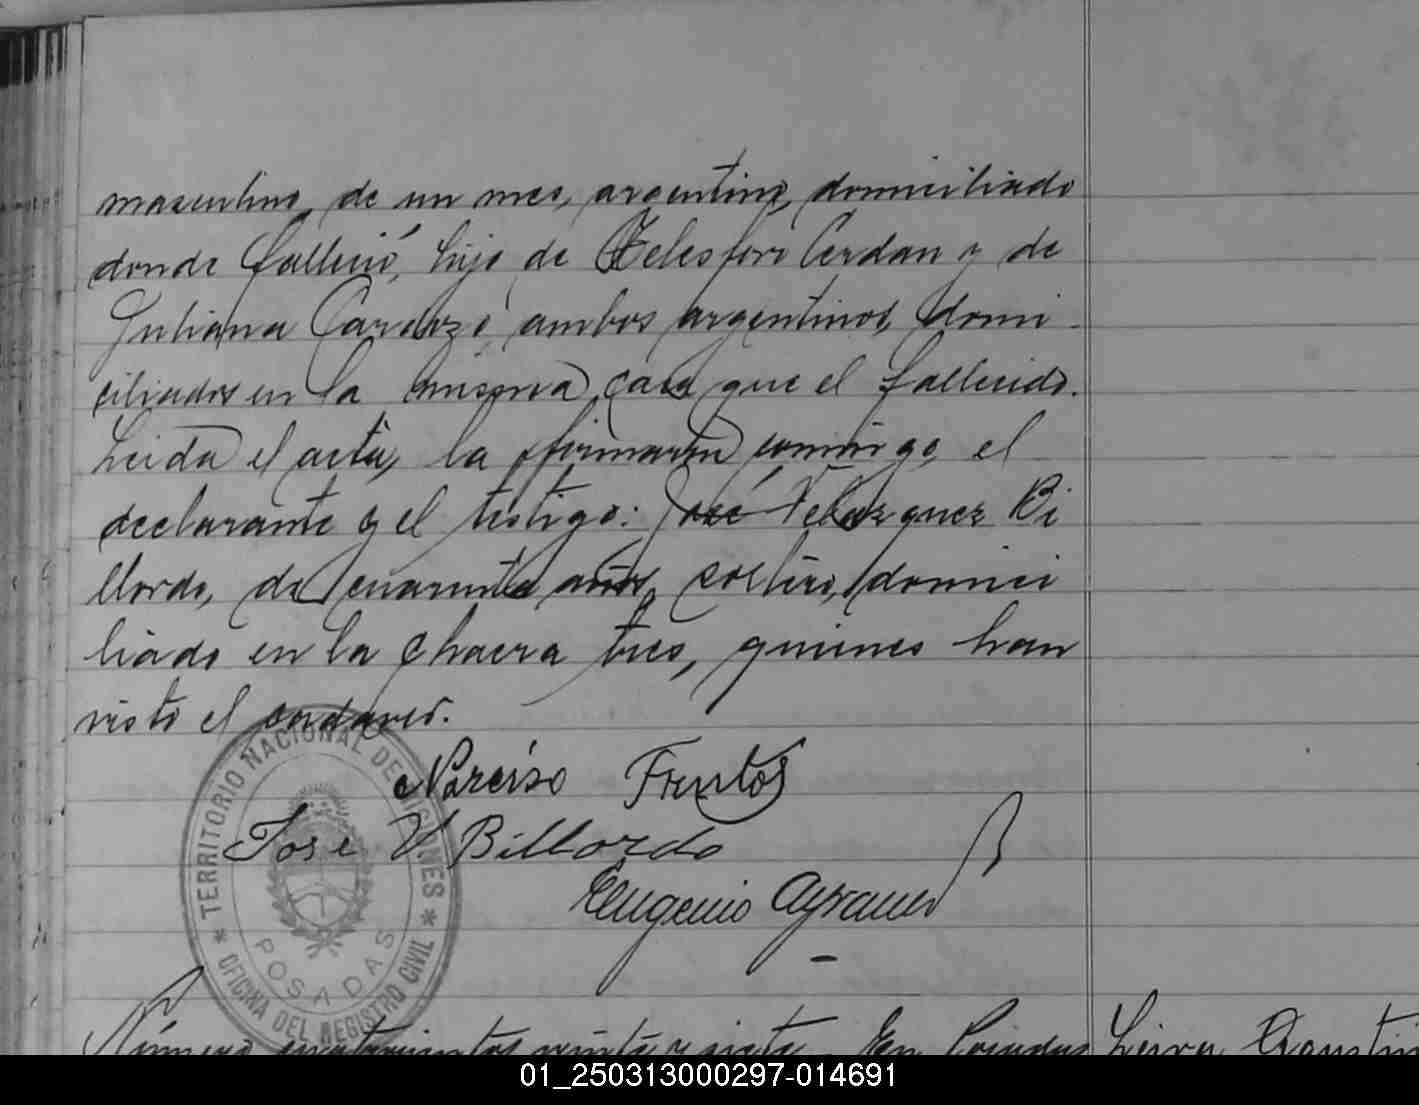 masculino, de un mes, argentino, domiciliado
donde falleció, hijo de Telesforo Cerdan y de
Juliana Cardozo, ambos argentinos, domi-
ciliados en la misma casa que el fallecido.
Leida el acta, la firmaron conmigo, el
declarante y el testigo: José Velazquez Bi
llordo, de cuarenta años, soltero, domici
liado en la chacra tres, quienes han
visto el cadaver.
Narciso Frutos
José V. Billordo
Eugenio
TERRITORIO NACIONAL DE MISIONES
POSADAS
* OFICINA DEL REGISTRO CIVIL *
Número cuatrocientos veinte y siete. En Posadas
Leiva Agustin
01_250313000297-014691